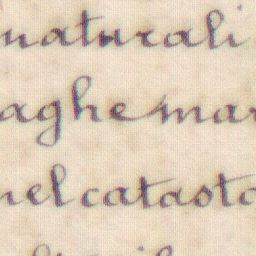 naturali
aghe mar
nel catasto